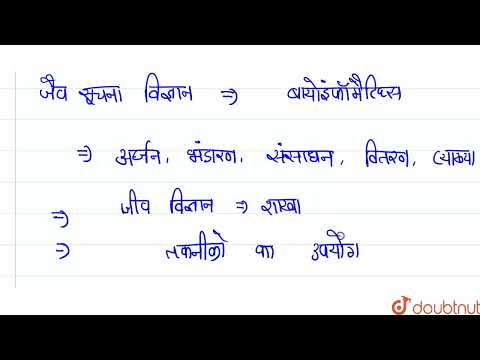 जैव सूचना विज्ञान ⇒ बायोइंफॉर्मैटिक्स
⇒ अर्जन, भंडारण, संसाधन, वितरण, व्याख्या
⇒ जीव विज्ञान ⇒ शाखा
⇒ तकनीको का उपयोग
doubtnut